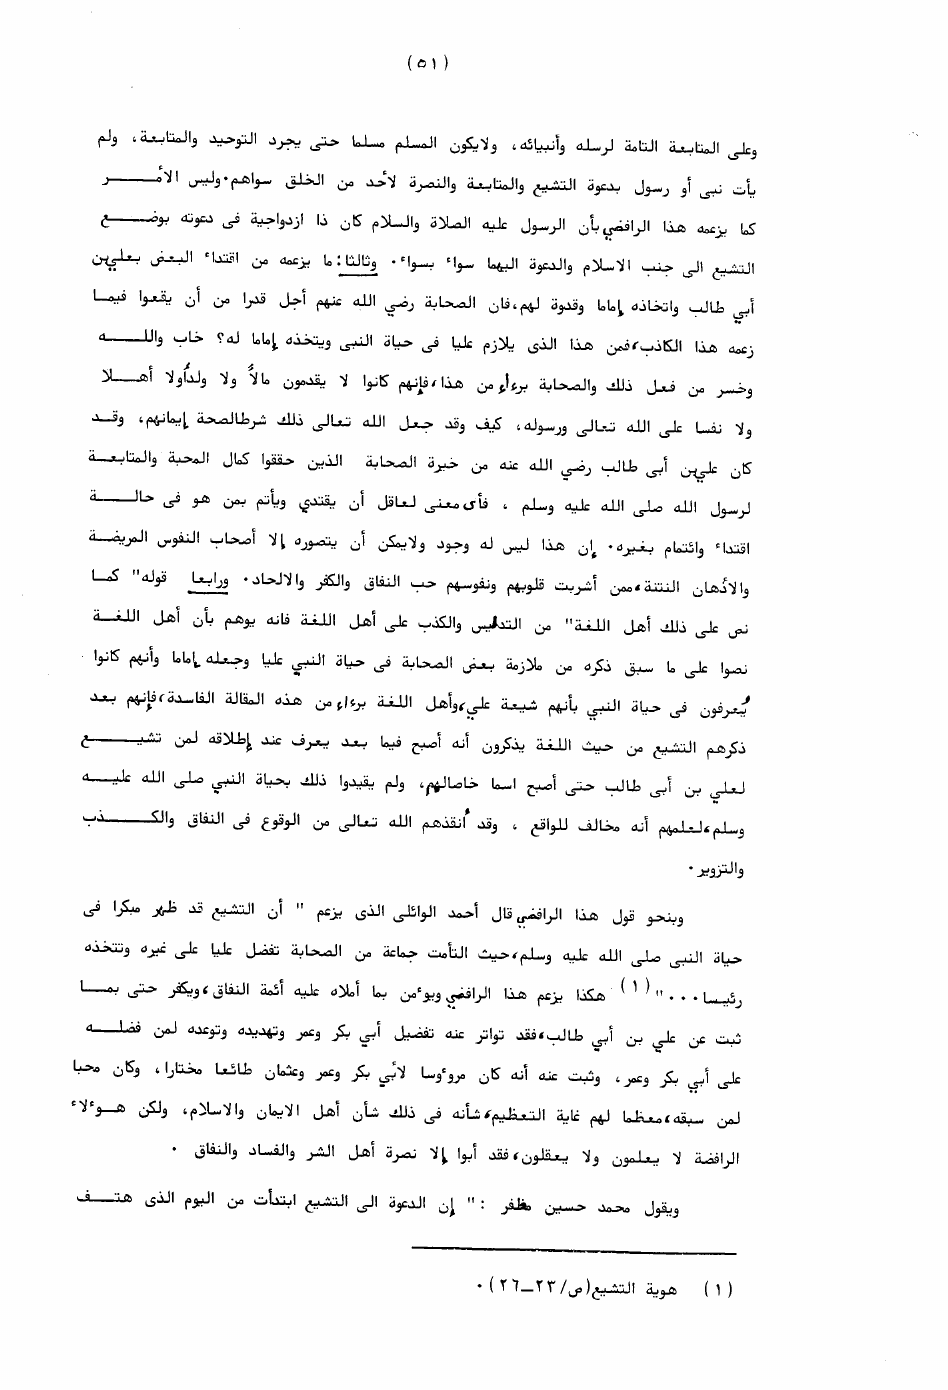 (٥١)
وعلى المتابعة التامة لرسله وأنبيائه، ولايكون المسلم مسلما حتى يجرد التوحيد والمتابعة، ولم
يأت نبى أو رسول بدعوة التشيع والمتابعة والنصرة لأحد من الخلق سواهم٠وليس الأمـــــر
كما يزعمه هذا الرافضي بأن الرسول عليه الصلاة والسلام كان ذا ازدواجية فى دعوته بوضـــع
التشيع الى جنب الاسلام والدعوة اليهما سواء بسواء٠ وثالثا: ما يزعمه من اقتداء البعض بعلي بن
أبي طالب واتخاذه إماما وقدوة لهم،فان الصحابة رضي الله عنهم أجل قدرا من أن يقعوا فيمـا
زعمه هذا الكاذب،فمن هذا الذى يلازم عليا فى حياة النبى ويتخذه إماما له؟ خاب واللــــه
وخسر من فعل ذلك والصحابة برءاء من هذا،فإنهم كانوا لا يقدمون مالاً ولا ولداً ولا أهـــلا
ولا نفسا على الله تعالى ورسوله، كيف وقد جعل الله تعالى ذلك شرطالصحة إيمانهم، وقـد
كان علي بن أبى طالب رضي الله عنه من خيرة الصحابة الذين حققوا كمال المحبة والمتابعـة
لرسول الله صلى الله عليه وسلم ، فأى معنى لعاقل أن يقتدي ويأتم بمن هو فى حالـــــة
اقتداء وائتمام بغيره٠ إن هذا ليس له وجود ولايمكن أن يتصوره إلا أصحاب النفوس المريضـة
والأذهان النتنة،ممن أشربت قلوبهم ونفوسهم حب النفاق والكفر والالحاد٠ ورابعا قوله" كمـا
نص على ذلك أهل اللغة" من التدليس والكذب على أهل اللغة فانه يوهم بأن أهل اللغـة
نصوا على ما سبق ذكره من ملازمة بعض الصحابة فى حياة النبي عليا وجعله إماما وأنهم كانوا
يُعرفون فى حياة النبي بأنهم شيعة علي،وأهل اللغة برءاء من هذه المقالة الفاسدة،فإنهم بعد
ذكرهم التشيع من حيث اللغة يذكرون أنه أصبح فيما بعد يعرف عند إطلاقه لمن تشيــــع
لعلي بن أبى طالب حتى أصبح اسما خاصالهم، ولم يقيدوا ذلك بحياة النبي صلى الله عليـــه
وسلم،لعلمهم أنه مخالف للواقع ، وقد أنقذهم الله تعالى من الوقوع فى النفاق والكــــذب
والتزوير ٠
وبنحو قول هذا الرافضي قال أحمد الوائلى الذى يزعم " أن التشيع قد ظهر مبكرا فى
حياة النبى صلى الله عليه وسلم،حيث التأمت جماعة من الصحابة تفضل عليا على غيره وتتخذه
رئيسا٠٠٠"(١) هكذا يزعم هذا الرافضي ويؤمن بما أملاه عليه أئمة النفاق،ويكفر حتى بمــا
ثبت عن علي بن أبي طالب،فقد تواتر عنه تفضيل أبي بكر وعمر وتهديده وتوعده لمن فضلـــه
على أبي بكر وعمر، وثبت عنه أنه كان مرؤوسا لأبي بكر وعمر وعثمان طائعا مختارا، وكان محبا
لمن سبقه،معظما لهم غاية التعظيم،شأنه فى ذلك شأن أهل الايمان والاسلام، ولكن هــؤلاء
الرافضة لا يعلمون ولا يعقلون،فقد أبوا إلا نصرة أهل الشر والفساد والنفاق ٠
ويقول محمد حسين مظفر :" إن الدعوة الى التشيع ابتدأت من اليوم الذى هتـــف
(١) هوية التشيع(ص/٢٣ــ٢٦)٠